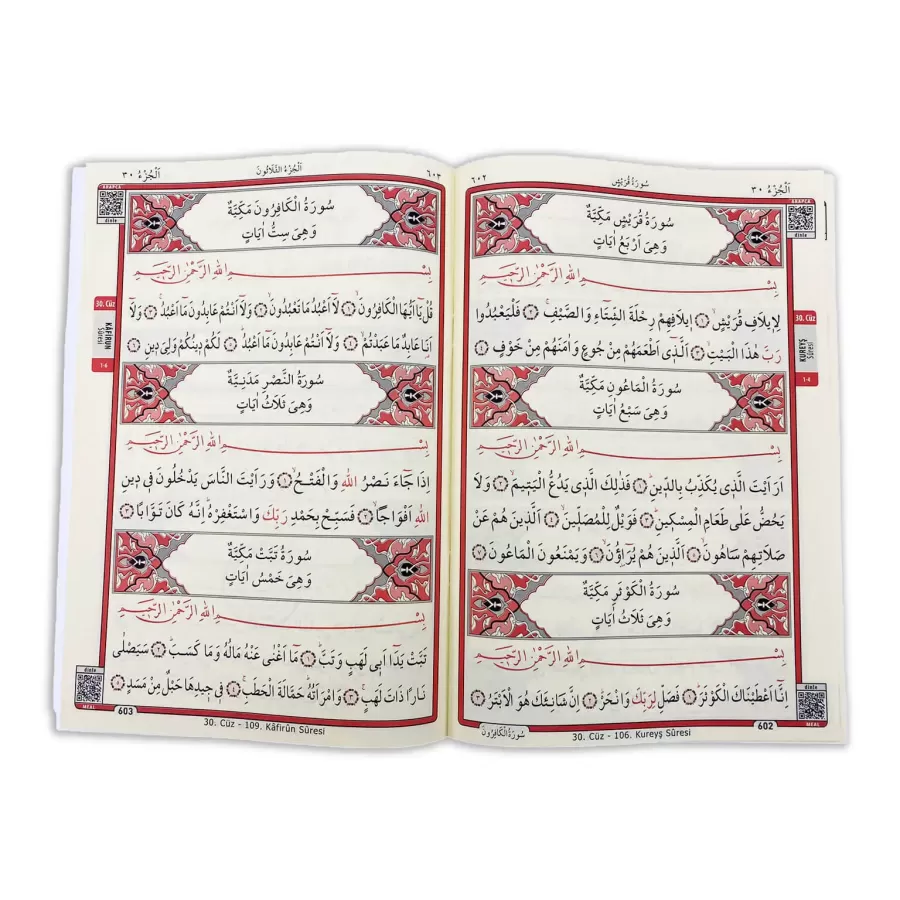 اَلْجُزْءُ ٣٠
سُورَةُ قُرَيْشٍ
٦٠٢
ARAPÇA
dinle
سُورَةُ قُرَيْشٍ مَكِّيَّةٌ
وَهِىَ اَرْبَعُ اٰيَاتٍ
بِسْمِ اللهِ الرَّحْمٰنِ الرَّحِيمِ
لِاِيلَافِ قُرَيْشٍۙ ﴿١﴾ اٖيلَافِهِمْ رِحْلَةَ الشِّتَٓاءِ وَالصَّيْفِۚ ﴿٢﴾ فَلْيَعْبُدُوا
رَبَّ هٰذَا الْبَيْتِۙ ﴿٣﴾ اَلَّذٖٓى اَطْعَمَهُمْ مِنْ جُوعٍ وَاٰمَنَهُمْ مِنْ خَوْفٍ ﴿٤﴾
30. Cüz
KUREYŞ
Sûresi
1-4
سُورَةُ الْمَاعُونِ مَكِّيَّةٌ
وَهِىَ سَبْعُ اٰيَاتٍ
بِسْمِ اللهِ الرَّحْمٰنِ الرَّحِيمِ
اَرَاَيْتَ الَّذٖى يُكَذِّبُ بِالدّٖينِؕ ﴿١﴾ فَذٰلِكَ الَّذٖى يَدُعُّ الْيَتٖيمَۙ ﴿٢﴾ وَلَا
يَحُضُّ عَلٰى طَعَامِ الْمِسْكٖينِؕ ﴿٣﴾ فَوَيْلٌ لِلْمُصَلّٖينَۙ ﴿٤﴾ اَلَّذٖينَ هُمْ عَنْ
صَلَاتِهِمْ سَاهُونَۙ ﴿٥﴾ اَلَّذٖينَ هُمْ يُرَٓاؤُ۫نَۙ ﴿٦﴾ وَيَمْنَعُونَ الْمَاعُونَ ﴿٧﴾
سُورَةُ الْكَوْثَرِ مَكِّيَّةٌ
وَهِىَ ثَلَاثُ اٰيَاتٍ
بِسْمِ اللهِ الرَّحْمٰنِ الرَّحِيمِ
اِنَّٓا اَعْطَيْنَاكَ الْكَوْثَرَؕ ﴿١﴾ فَصَلِّ لِرَبِّكَ وَانْحَرْؕ ﴿٢﴾ اِنَّ شَانِئَكَ هُوَ الْاَبْتَرُ ﴿٣﴾
dinle
MEAL
602
30. Cüz - 106. Kureyş Sûresi
سُورَةُ الْكَافِرُونَ
٦٠٣
اَلْجُزْءُ الثَّلَاثُونَ
اَلْجُزْءُ ٣٠
ARAPÇA
dinle
سُورَةُ الْكَافِرُونَ مَكِّيَّةٌ
وَهِىَ سِتُّ اٰيَاتٍ
بِسْمِ اللهِ الرَّحْمٰنِ الرَّحِيمِ
قُلْ يَٓا اَيُّهَا الْكَافِرُونَۙ ﴿١﴾ لَٓا اَعْبُدُ مَا تَعْبُدُونَۙ ﴿٢﴾ وَلَٓا اَنْتُمْ عَابِدُونَ مَٓا اَعْبُدُۚ ﴿٣﴾ وَلَٓا
اَنَا۬ عَابِدٌ مَا عَبَدْتُمْۙ ﴿٤﴾ وَلَٓا اَنْتُمْ عَابِدُونَ مَٓا اَعْبُدُؕ ﴿٥﴾ لَكُمْ دٖينُكُمْ وَلِىَ دٖينِ ﴿٦﴾
30. Cüz
KÂFİRUN
Sûresi
1-6
سُورَةُ النَّصْرِ مَدَنِيَّةٌ
وَهِىَ ثَلَاثُ اٰيَاتٍ
بِسْمِ اللهِ الرَّحْمٰنِ الرَّحِيمِ
اِذَا جَٓاءَ نَصْرُ اللهِ وَالْفَتْحُۙ ﴿١﴾ وَرَاَيْتَ النَّاسَ يَدْخُلُونَ فٖى دٖينِ
اللهِ اَفْوَاجًاۙ ﴿٢﴾ فَسَبِّحْ بِحَمْدِ رَبِّكَ وَاسْتَغْفِرْهُؕ اِنَّهُ كَانَ تَوَّابًا ﴿٣﴾
سُورَةُ تَبَّتْ مَكِّيَّةٌ
وَهِىَ خَمْسُ اٰيَاتٍ
بِسْمِ اللهِ الرَّحْمٰنِ الرَّحِيمِ
تَبَّتْ يَدَٓا اَبٖى لَهَبٍ وَتَبَّؕ ﴿١﴾ مَٓا اَغْنٰى عَنْهُ مَالُهُ وَمَا كَسَبَؕ ﴿٢﴾ سَيَصْلٰى
نَارًا ذَاتَ لَهَبٍۚ ﴿٣﴾ وَامْرَاَتُهُؕ حَمَّالَةَ الْحَطَبِۚ ﴿٤﴾ فٖى جٖيدِهَا حَبْلٌ مِنْ مَسَدٍ ﴿٥﴾
dinle
MEAL
603
30. Cüz - 109. Kâfirûn Sûresi